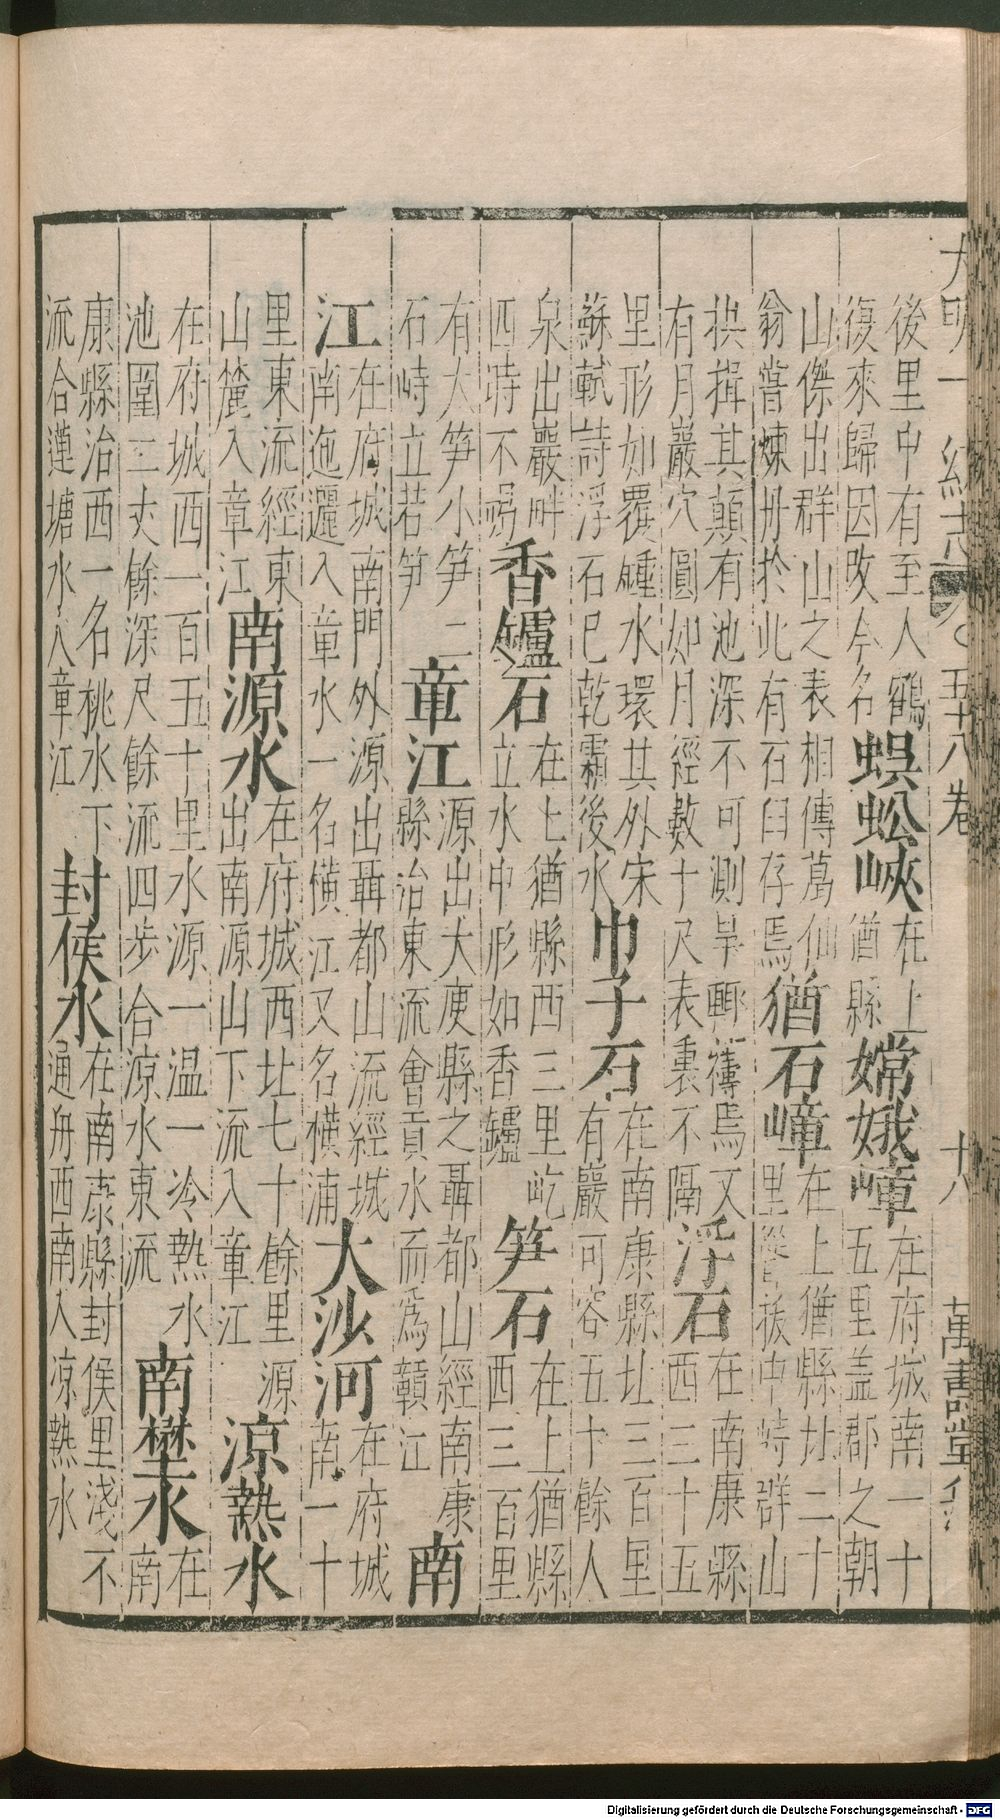 大明一統志 五十八卷 十八 萬壽堂
後里中有至人鶴復來歸因改今名蜈蚣峽在上猶縣嫦娥嶂在府城南一十五里盖郡之朝
山傑出群山之表相傳葛仙翁嘗煉丹於此有石臼存焉猶石嶂在上猶縣北二十里中峙群山
拱揖其顛有池深不可測旱輙禱焉又有月巖穴圓如月經數十尺表裏不隔浮石在南康縣西三十五
里形如覆鍾水環其外宋蘇軾詩浮石已乾霜後水巾子石在南康縣北三百里有巖可容五十餘人
泉出巖畔四時不竭香罏石在上猶縣西三里屹立水中形如香罏笋石在上猶縣西三百里
有大笋小笋二石峙立若笋章江源出大庾縣之聶都山經南康縣治東流會貢水而為贛江南
江在府城南門外源出聶都山流經城南迤邐入章水一名橫江又名橫浦大沙河在府城南一十
里東流經東山麓入章江南源水在府城西北七十餘里源出南源山下流入章江涼熱水
在府城西一百五十里水源一温一冷熱水池圍三丈餘深尺餘流四步合涼水東流南埜水在南
康縣治西一名桃水下流合蓮塘水入章江封侯水在南康縣封侯里淺不通舟西南入涼熱水
Digitalisierung gefördert durch die Deutsche Forschungsgemeinschaft - DFG